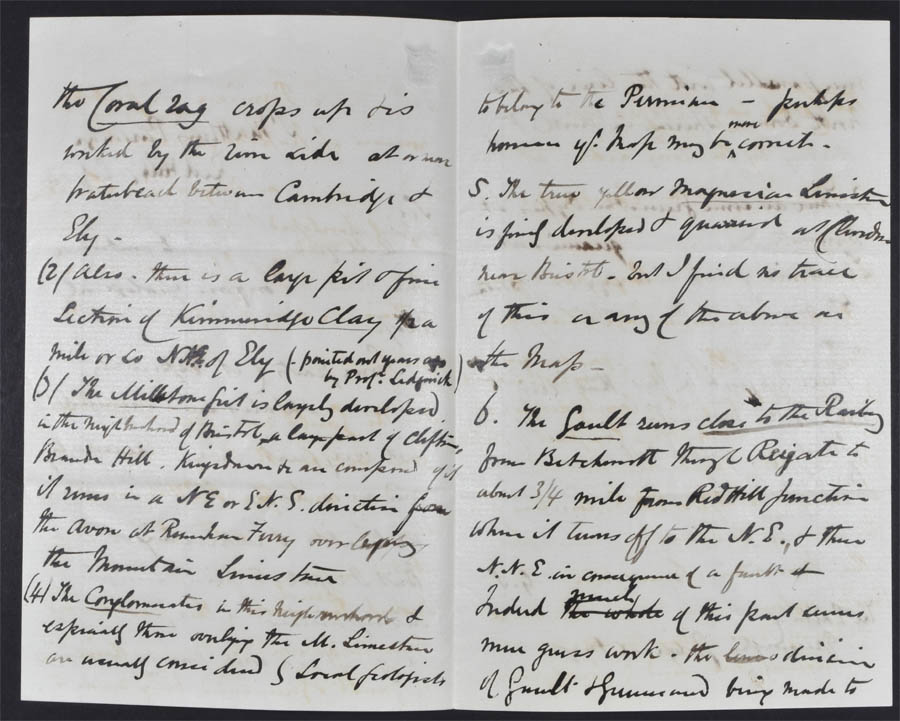 the Coral rag crops up & is
worked by the river side at or near
Waterbeach between Cambridge &
Ely -
(2) Also - there is a large pit & fine
Section of Kimmeridge Clay a
mile or so NNE of Ely (pointed out years ago
by Profr. Sedgwick)
(3) The Millstone grit is largely developed
in the neighbourhood of Bristol, a large part of Clifton,
Brandon Hill. Kingsdown &c are composed of it
it runs in a NE or E.N.E. direction from
the Avon at Rownham Ferry overlapping
the Mountain Limestone
(4) The Conglomerates in this neighbourhood &
especially those overlying the M. Limestone
are usually considered by Local geologists
to belong to the Permian - perhaps
however yr. Map may be more correct -
5. The true yellow Magnesian Limestone
is finely developed & quarried at Clevedon
near Bristol - but I find no trace
of this or any of the above on
the Map -
6. The Gault runs close to the Railway
from Betchworth through Reigate to
about 3/4 mile from Red Hill Junction
where it turns off to the N.E., & then
N.N.E. in consequence of a fault
Indeed the whole much of this part seems
mere guess work - the division
of Gault & Greensand being made to